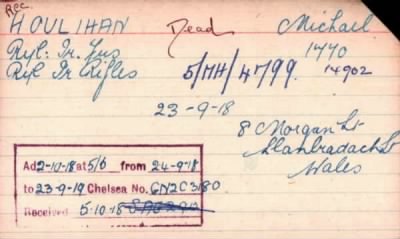 Rec.
HOULIHAN Dead Michael
Ryl: Ir. Fus 1440
Ryl Ir Rifles 5/MH/4799. 14902
23-9-18
8 Morgan St
Llanbradach St
Wales
Ad 2-10-18 at 5/6 from 24-9-18
to 23-9-19 Chelsea No. 6N2C3180
Received 5-10-18